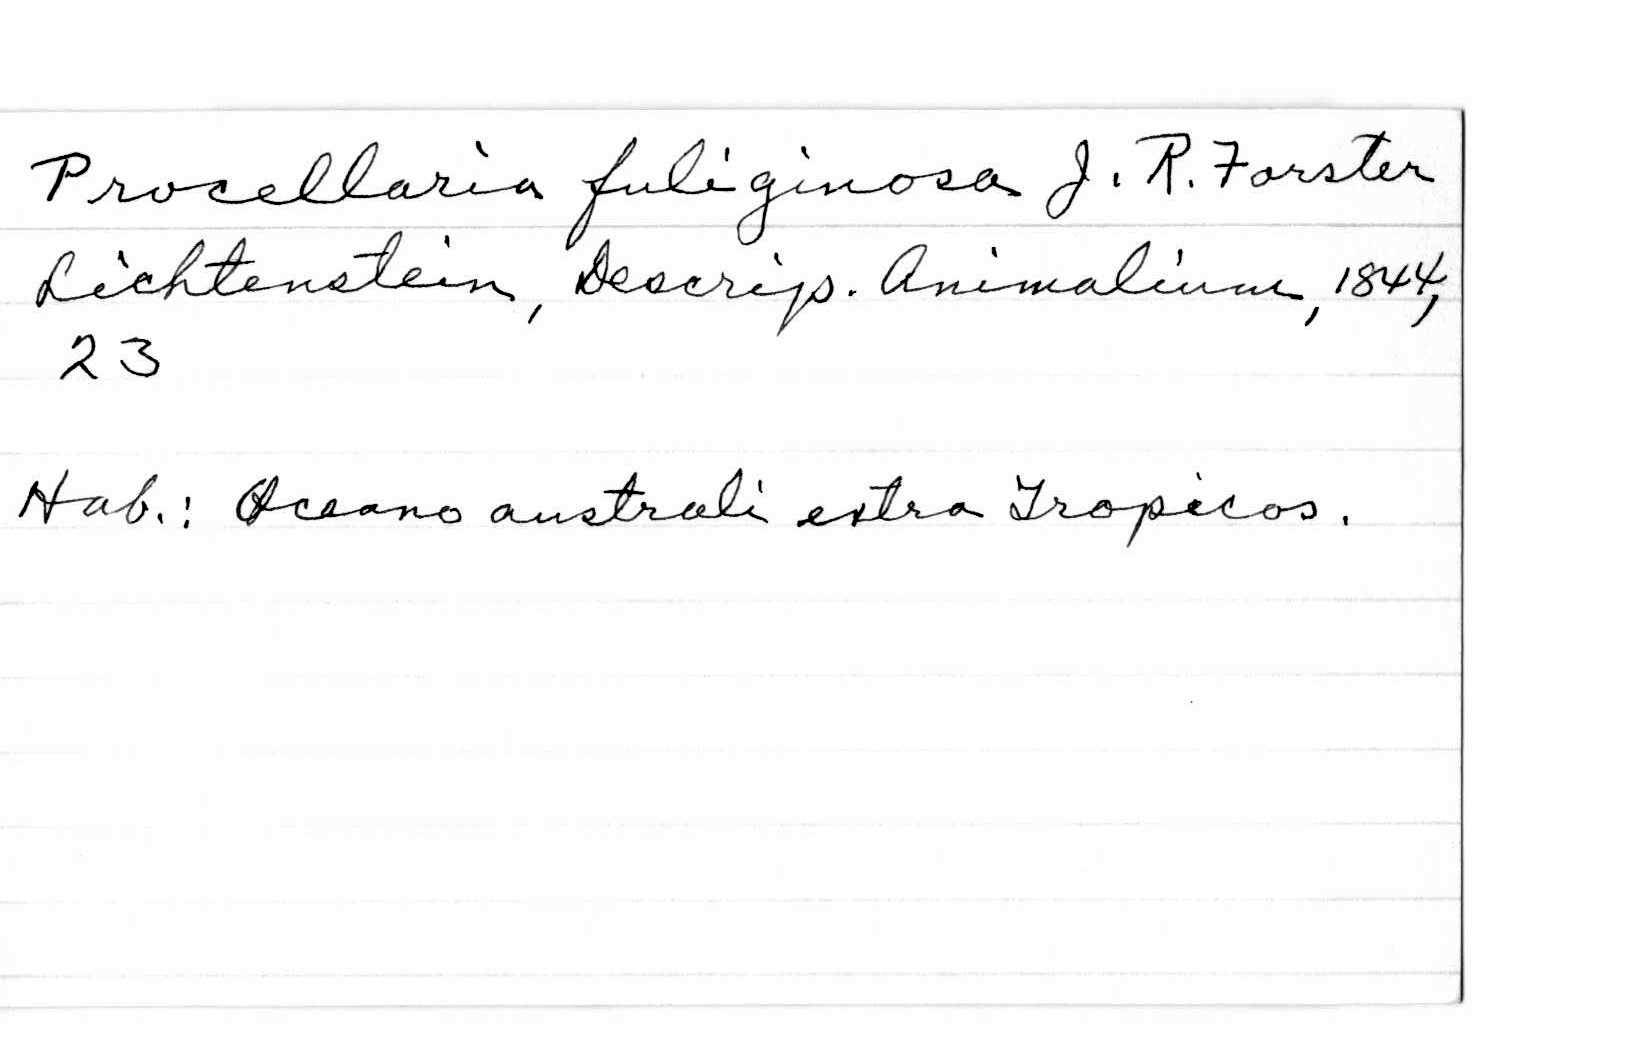 Procellaria fuliginosa J. R. Forster
Lichtenstein, Descrip. Animalium, 1844,
23
Hab.: Oceano australi extra Tropicos.